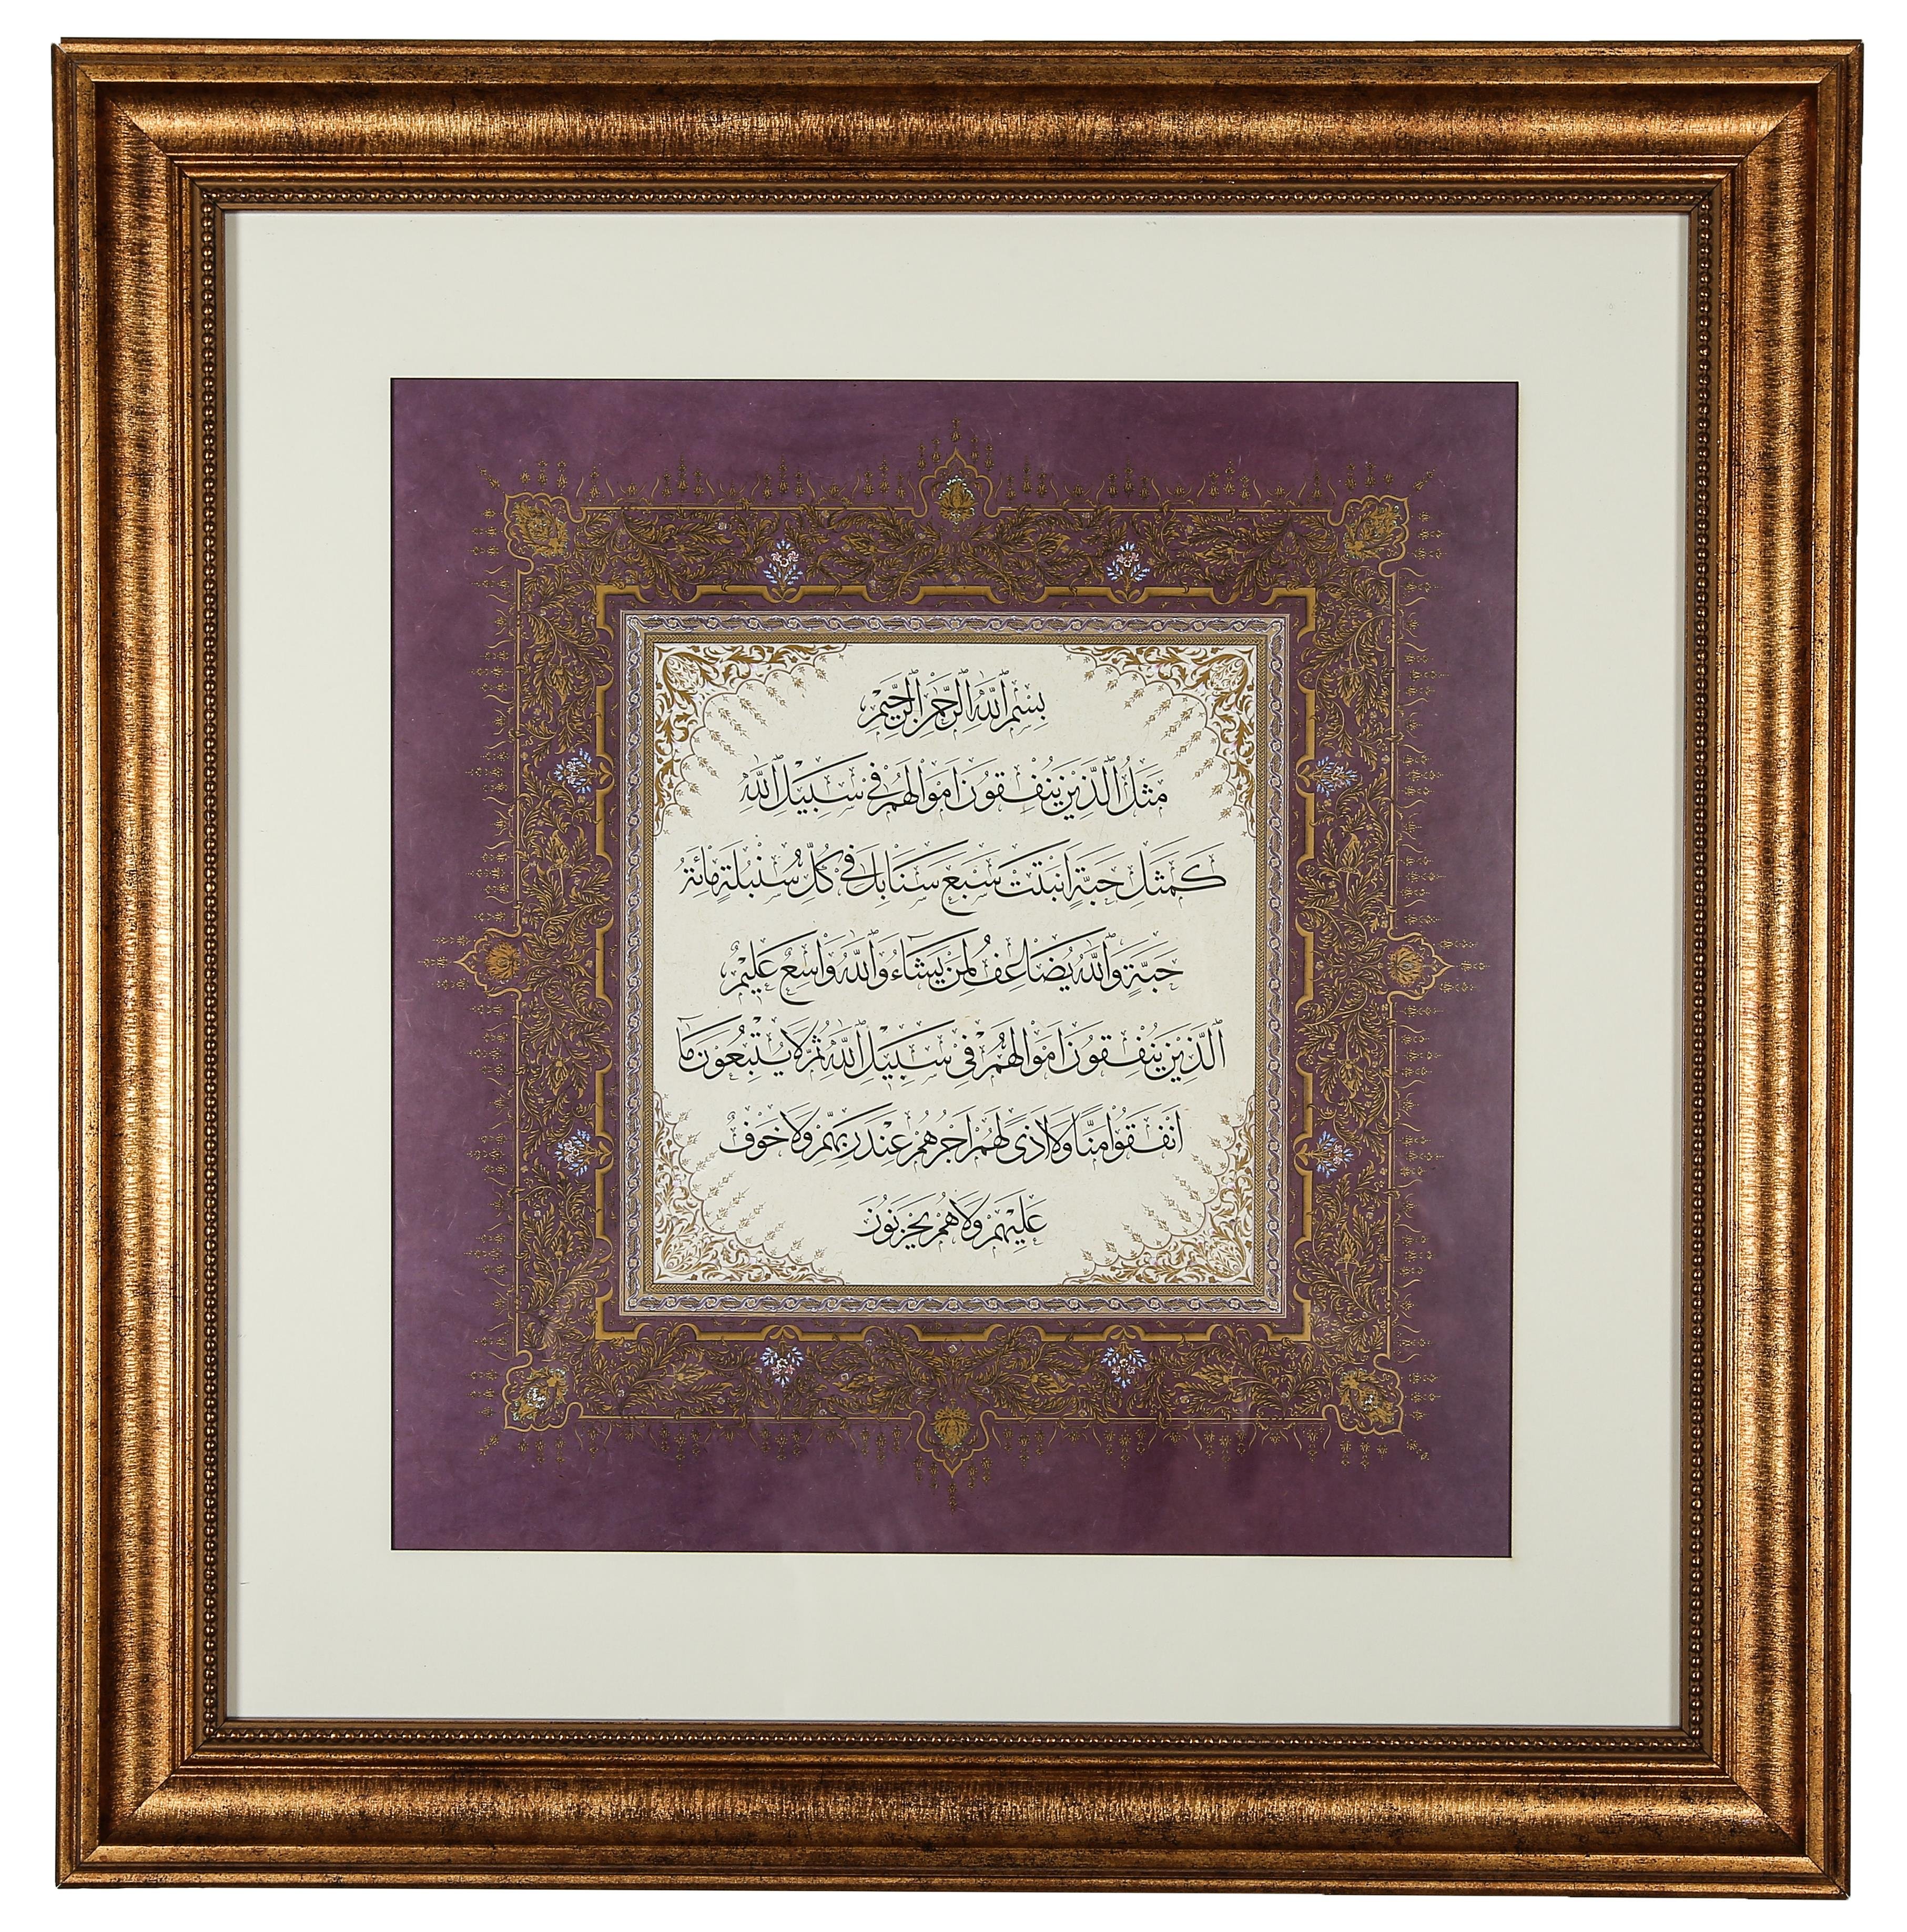 بِسْمِ ٱللَّهِ ٱلرَّحْمٰنِ ٱلرَّحِيْمِ
مَثَلُ ٱلَّذِيْنَ يُنْفِقُونَ اَمْوَالَهُمْ فِي سَبِيْلِ ٱللَّهِ
كَمَثَلِ حَبَّةٍ اَنْبَتَتْ سَبْعَ سَنَابِلَ فِي كُلِّ سُنْبُلَةٍ مِائَةُ
حَبَّةٍ وَٱللَّهُ يُضَاعِفُ لِمَنْ يَشَآءُ وَٱللَّهُ وَاسِعٌ عَلِيْمٌ
ٱلَّذِيْنَ يُنْفِقُونَ اَمْوَالَهُمْ فِيْ سَبِيْلِ ٱللَّهِ ثُمَّ لَا يُتْبِعُونَ مَآ
اَنْفَقُوْا مَنًّا وَلَا اَذًى لَهُمْ اَجْرُهُمْ عِنْدَ رَبِّهِمْ وَلَا خَوْفٌ
عَلَيْهِمْ وَلَا هُمْ يَحْزَنُوْنَ